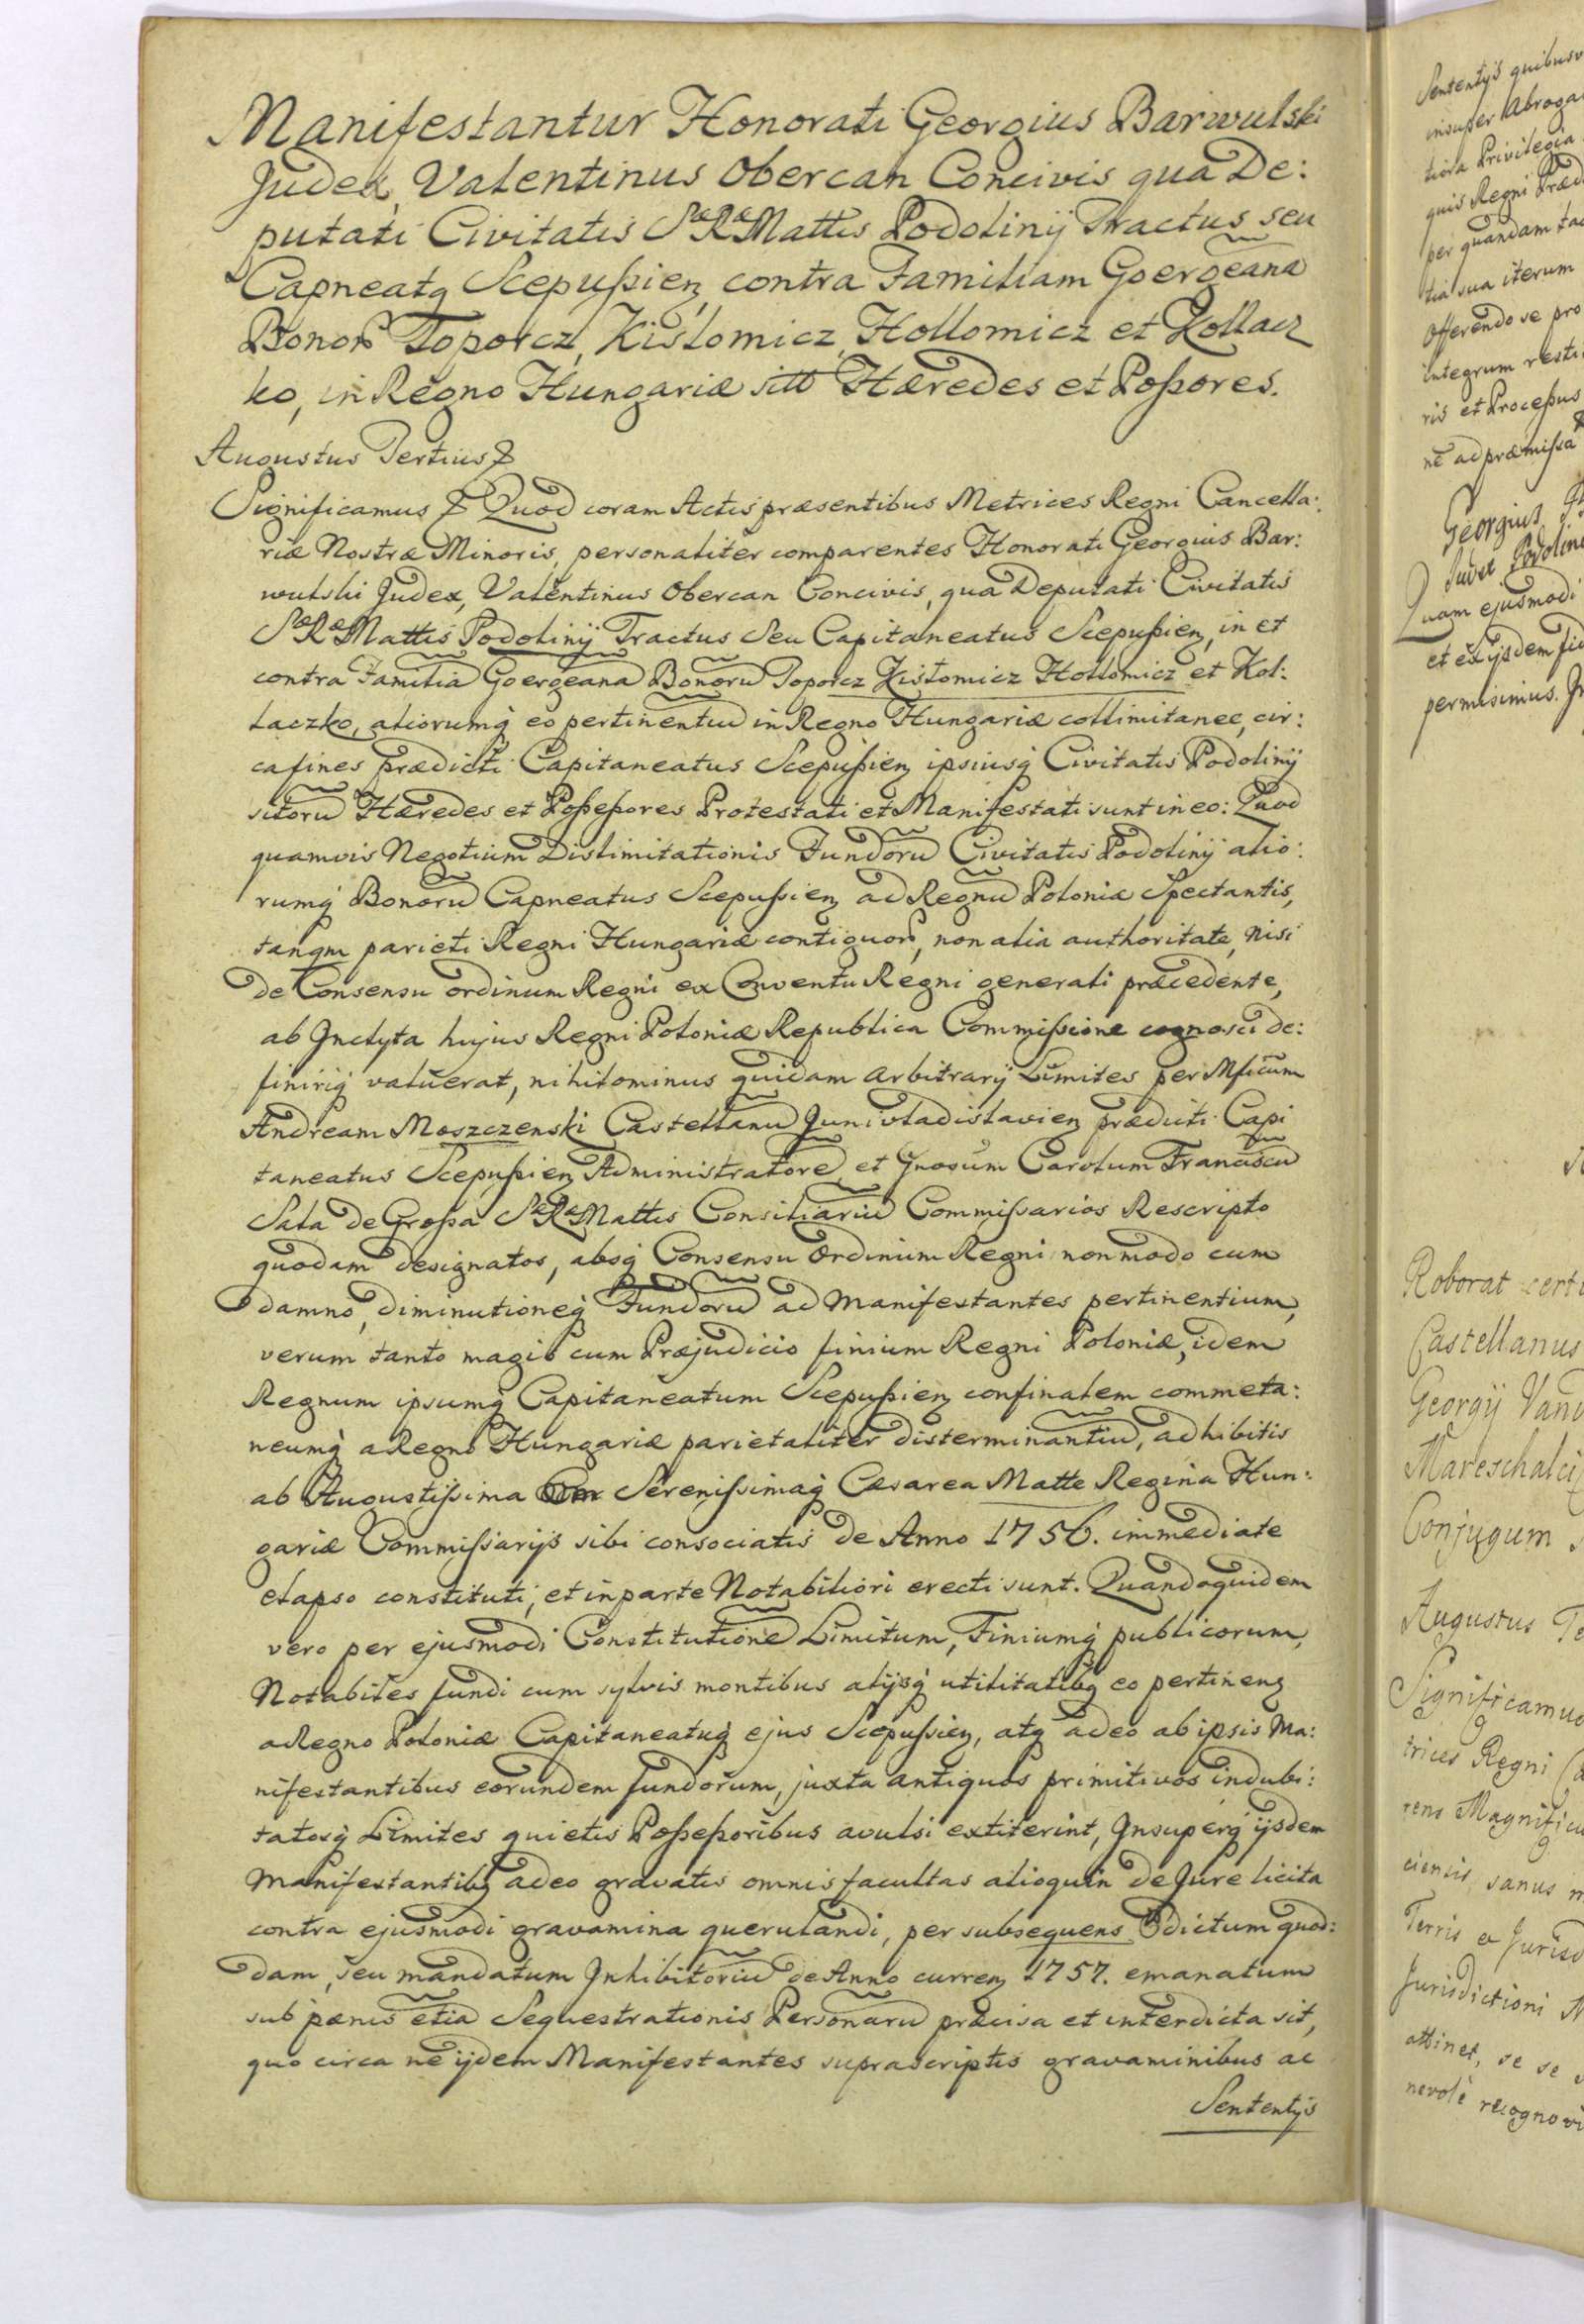 Manifestantur Honorati Georgius Barwulski
Judex, Valentinus Obercan Concivis qua De:
putati Civitatis Sæ Ræ Mattis Podolinÿ Tractus seu
Capneatq Scepußienz contra Familiam Goergeana
Bonorū Toporcz, Kislomicz, Hollomicz et Kollacz
ko, in Regno Hungariæ sitt Hæredes et Poßores.
Augustus Tertius
Significamus Quod coram Actis præsentibus Metrices Regni Cancella:
riæ Nostræ Minoris, personaliter comparentes Honorati Georgius Bar:
wulski Judex, Valentinus Obercan Concivis, qua Deputati Civitatis
Sæ Ræ Mattis Podolinÿ Tractus Seu Capitaneatus Scepußienz, in et
contra Familiā Goergeanā Bonorū Toporcz Kislomicz Hollomicz et Kol:
laczko, aliorumq eo pertinentiū in Regno Hungariæ collimitanee, cir:
ca fines prædicti Capitaneatus Scepußienz ipsiusq Civitatis Podolinÿ
sitorū Hæredes et Poßeßores Protestati et Manifestati sunt in eo: Quod
quamvis Negotium Dislimitationis Fundorū Civitatis Podolinÿ alio:
rumq Bonorū Capneatus Scepußienz ad Regnū Poloniæ Spectantis,
tanqm parieti Regni Hungariæ contiguorū, non alia authoritate, nisi
de Consensu ordinum Regni ex Conventu Regni generali præcedente,
ab Inclyta hujus Regni Poloniæ Republica Commißione cognosci de:
finiriq valuerat, nihilominus quidam Arbitrarÿ Limites per Mficum
Andream Moszczenski Castellanū Junivladislavienz prædicti Capi
taneatus Scepußienz Administratorē et Gnosum Carolum Franciscū
Sala de Großa Sæ Ræ Mattis Consiliariū Commißarios Rescripto
quodam designatos, absq Consensu Ordinum Regni non modo cum
damno, diminutioneq Fundorū ad Manifestantes pertinentium,
verum tanto magis cum Præjudicio finium Regni Poloniæ, idem
Regnum ipsumq Capitaneatum Scepußienz confinalem commeta:
neumq a Regno Hungariæ parietaliter disterminantiū, adhibitis
ab Augustißima Serenißimaq Cæsarea Matte Regina Hun:
gariæ Commißarÿs sibi consociatis de Anno 1756. immediate
elapso constituti, et in parte Notabiliori erecti sunt. Quandoquidem
vero per ejusmodi Constitutionē Limitum, Finiumq publicorum,
Notabiles fundi cum sylvis montibus alÿsq utilitatibq eo pertinenz
a Regno Poloniæ Capitaneatuq ejus Scepußienz, atq adeo ab ipsis Ma:
nifestantibus eorundem fundorum, juxta antiquos primitivos indubi:
tatosq Limites quietis Poßeßoribus avulsi extiterint, Insuperq ÿsdem
Manifestantibq adeo gravatis omnis facultas alioquin de Jure licita
contra ejusmodi gravamina querulandi, per subsequens Edictum quod:
dam, seu mandatum Inhibitoriū de Anno currenz 1757. emanatum
sub pænis etiā Sequestrationis Personarū præcisa et interdicta sit,
quo circa ne ÿdem Manifestantes suprascriptis gravaminibus ac
Sententÿs
Sententÿs
insuper Abroga
tiora Privilegia
quis Regni Præd
per quandam
tia sua iterum
offerendo se pro
integrum resti
ris et Proceßus
ne ad præmißa
Georgius
Judex Podolin
Quam ejusmodi
et ex ÿsdem
permisimus.
Roborat certi
Castellanus
Georgÿ Vand
Mareschalci
Conjugum
Augustus Te
Significamus
trices Regni
rens Magnificu
ciensis, sanus
Terris et Jurisd
Jurisdictioni
attinet, se se
nevole recognovi